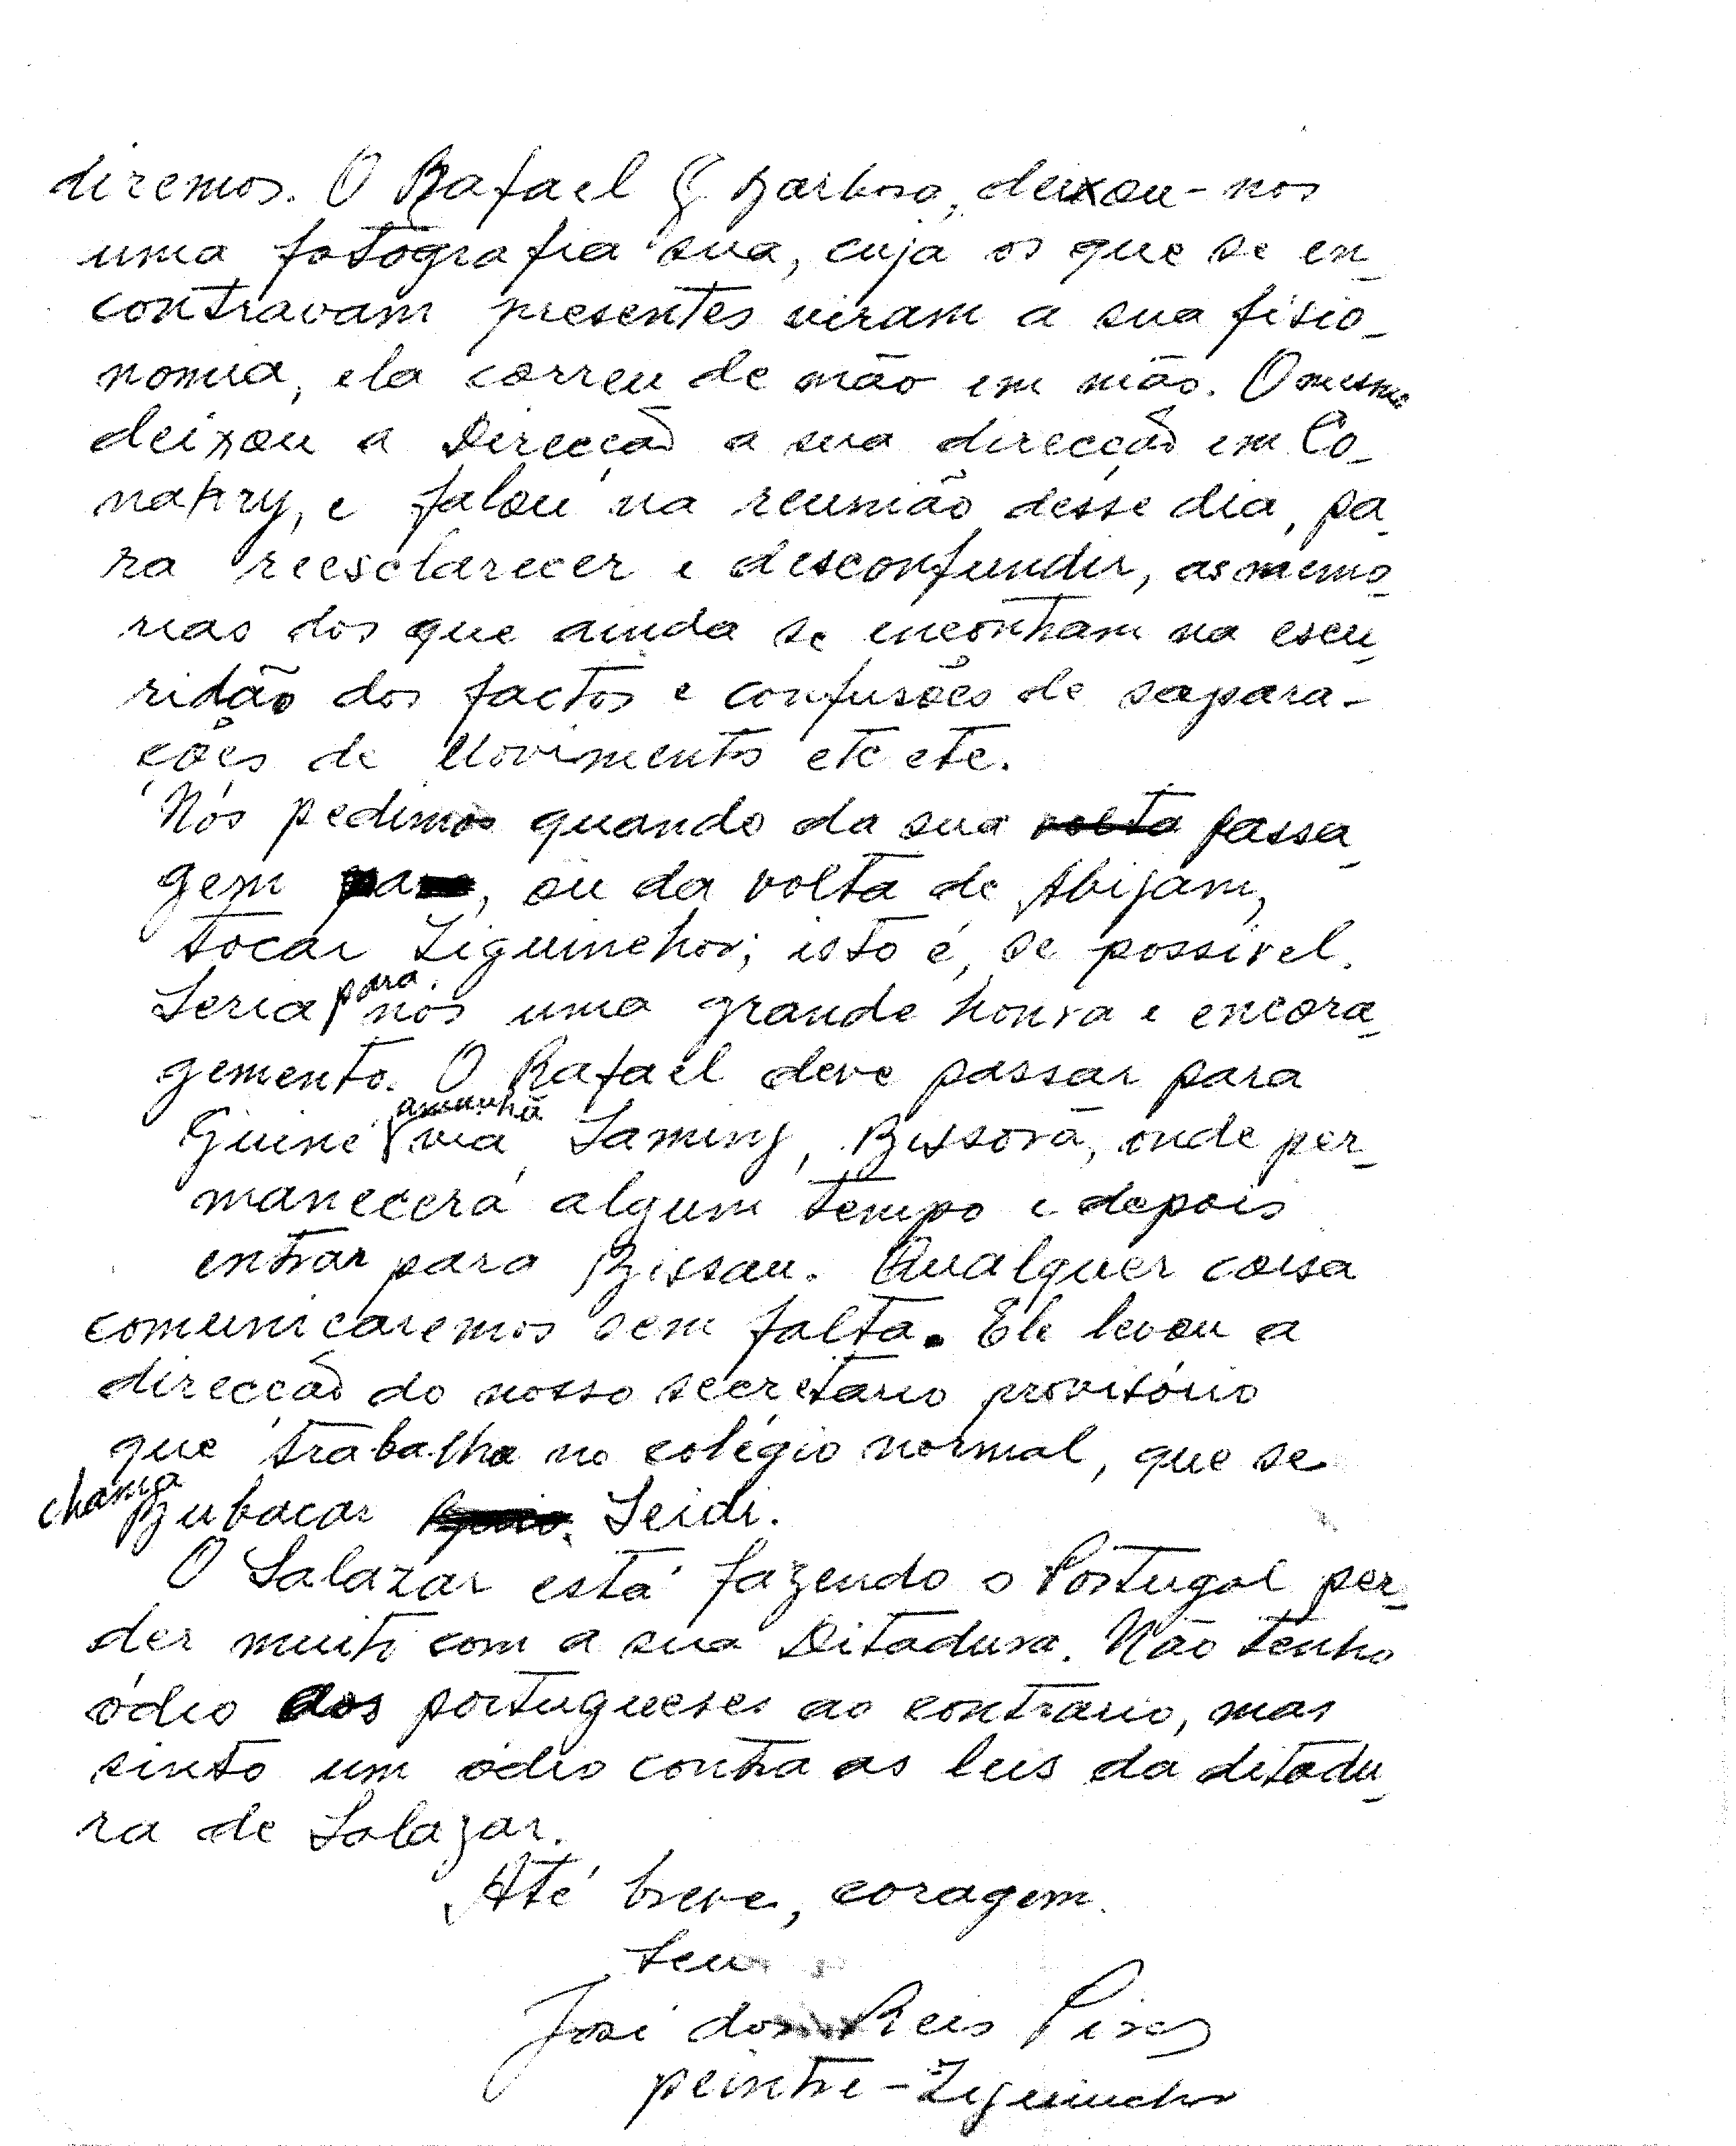 diremos. O Rafael Barbosa, deixou-nos
uma fotografia sua, cuja os que se en_
contravam presentes viram a sua fisio_
nomia, ela correu de mão em mão. O mesmo
deixou a Direcção a sua direcção em Co_
nakry, e falou na reunião desse dia, pa_
ra reesclarecer e desconfundir, as memo_
rias dos que ainda se encontram na escu_
ridão dos factos e confusões de separa-
ções de Movimentos etc etc.
Nós pedimos quando da sua volta passa_
gem para, ou da volta de Abijam,
tocar Ziguinchor; isto é, se possivel.
Seria para nós uma grande honra e encora_
gemento. O Rafael deve passar para
Guiné amanhã via Saming, Bissorã, onde per_
manecerá algum tempo e depois
entrar para Bissau. Qualquer coisa
comunicaremos sem falta. Ele levou a
direcção do nosso secretario provisório
que trabalha no colégio normal, que se
chama Bubacar Seidi.
O Salazar está fazendo o Portugal per_
der muito com a sua Ditadura. Não tenho
ódio aos portugueses ao contrario, mas
sinto um odio contra as leis da ditadu_
ra de Salazar.
Até breve, coragem.
Seu
José dos Reis Pires
peintre - Ziguinchor